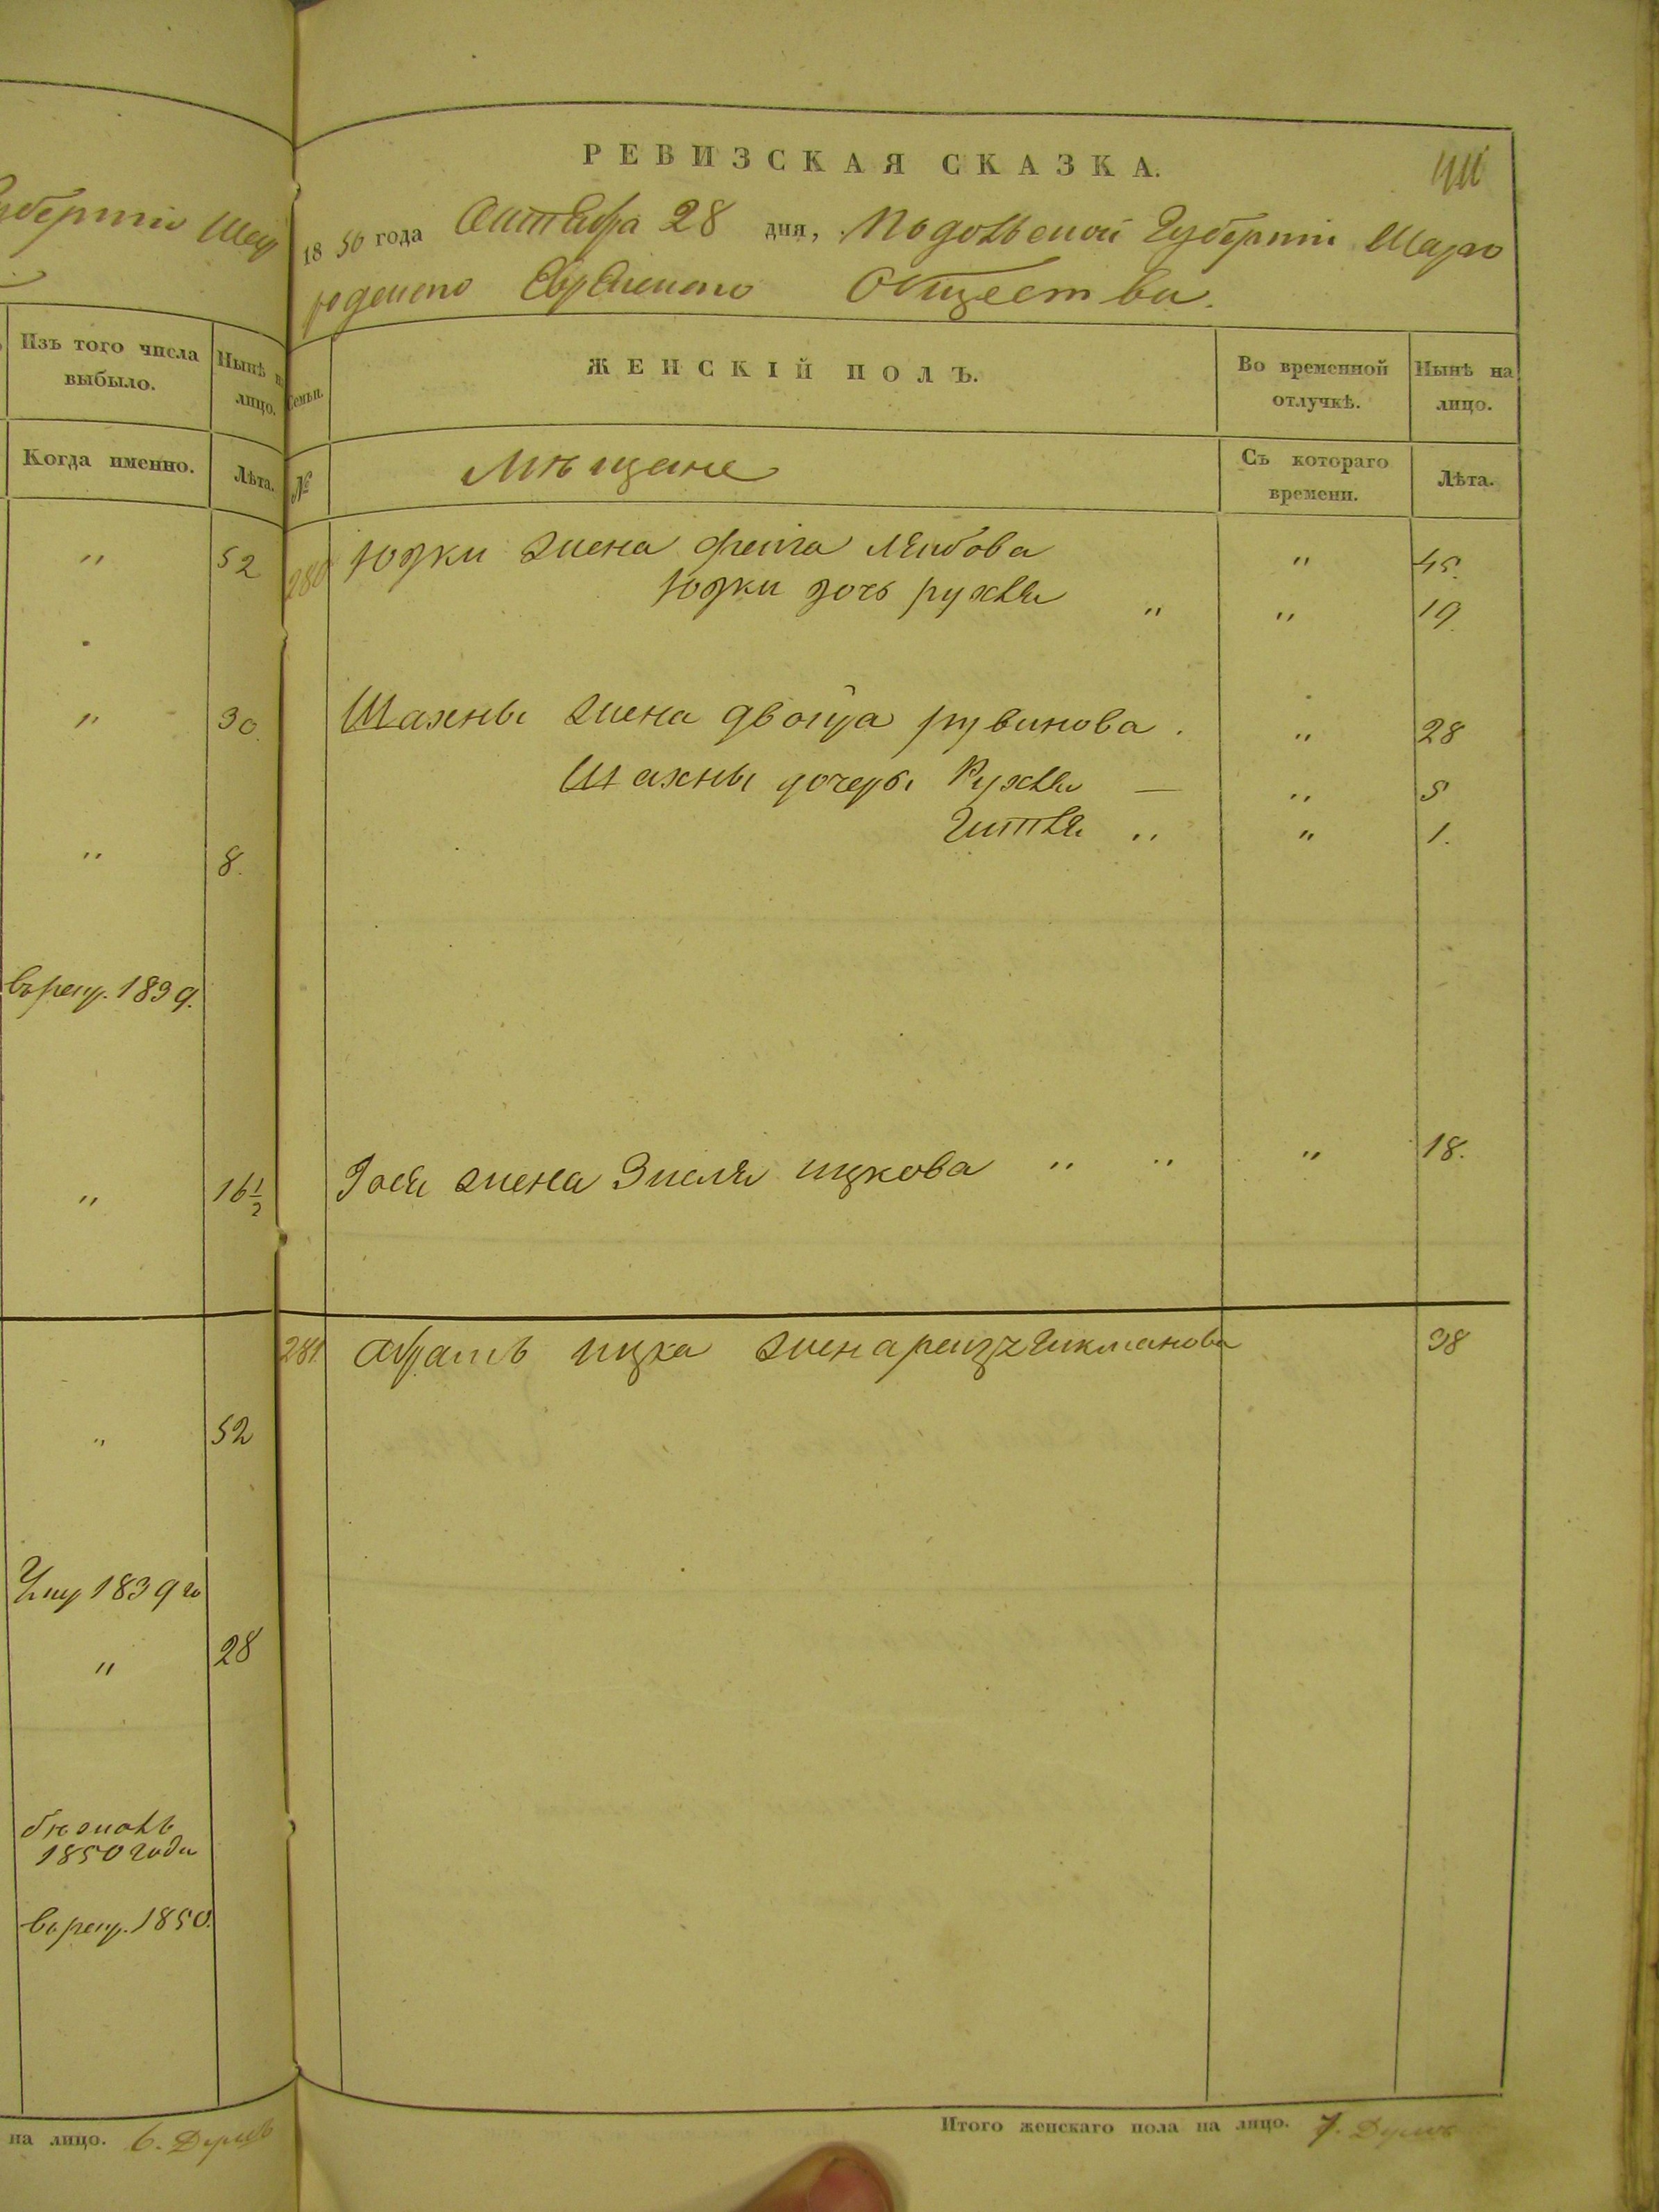 губерніи Шар
Изъ того числа выбыло.
Нынѣ на лицо.
Когда именно.
Лѣта.
"
52
"
30.
"
8.
въ рекр. 1839.
"
16 1/2
"
52
1839 го
"
28
1850 года
въ рекр. 1850.
на лицо. 6. Душъ
РЕВИЗСКАЯ СКАЗКА.
1850 года Октября 28 дня, Подольской Губерніи Шарго
родскаго Еврейскаго Общества.
Семьи.
ЖЕНСКІЙ ПОЛЪ.
Во временной отлучкѣ.
Нынѣ на лицо.
№
Мѣщане
Съ котораго времени.
Лѣта.
280 Юзки жена Фейга Лейбова " 45.
Юзки дочь рухля " " 19.
Шахны жена двойра рувинова. " 28
Шахны дочери Рухля — " 5
Гитля " " 1.
жена Зисля ицкова " " " 18.
281 Абрамъ ицка жена 38
Итого женскаго пола на лицо. 7. Душъ